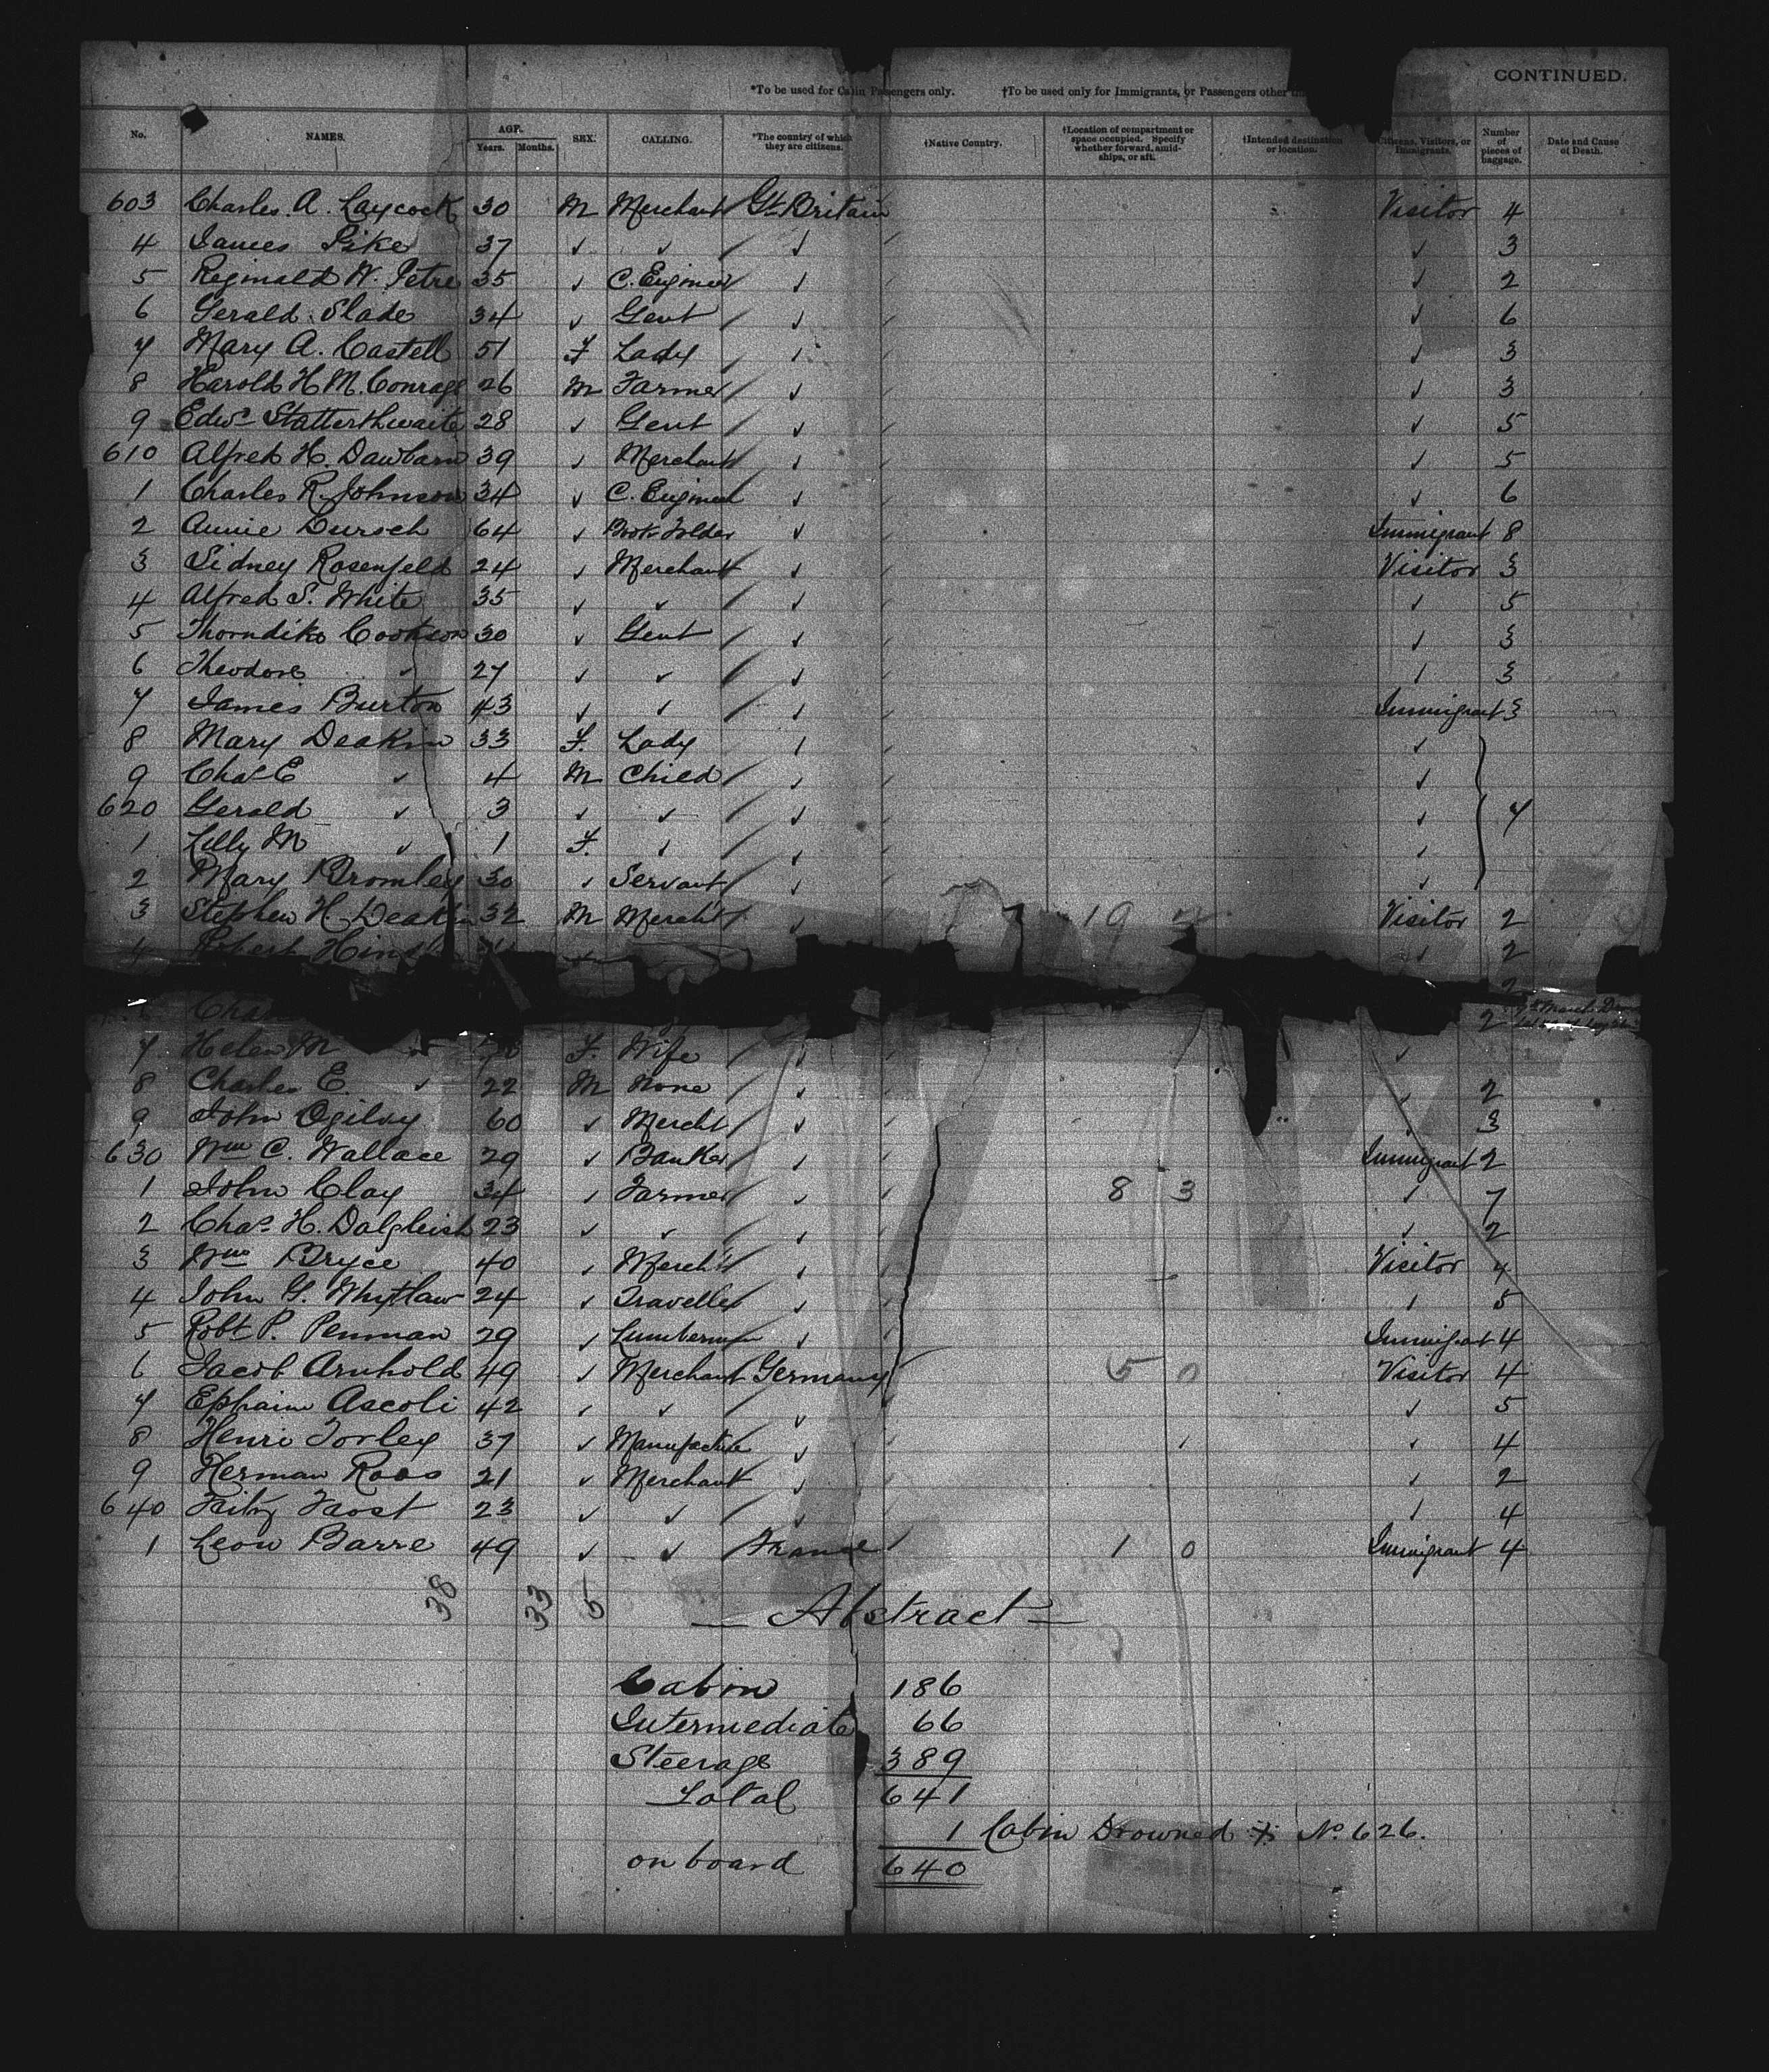 CONTINUED.
*To be used for Cabin Passengers only. †To be used only for Immigrants, or Passengers other
No. NAMES. AGE. Years. Months. SEX. CALLING. *The country of which they are citizens. †Native Country. †Location of compartment or space occupied. Specify whether forward, amid-ships, or aft. †Intended destination or location. Citizens, Visitors, or Immigrants. Number of pieces of baggage. Date and Cause of Death.
603 Charles. A. Laycock 30 M Merchant Gt. Britain Visitor 4
4 James Pike 37 ✓ ✓ ✓ ✓ 3
5 Reginald W. Petre 35 ✓ C. Engineer ✓ ✓ 2
6 Gerald Slade 34 ✓ Gent ✓ ✓ 6
7 Mary A. Castell 51 F Lady ✓ ✓ 3
8 Harold H. M. 26 M Farmer ✓ ✓ 3
9 Edwd 28 ✓ Gent ✓ ✓ 5
610 Alfred H. Dawbarn 39 ✓ Merchant ✓ ✓ 5
1 Charles R. Johnson 34 ✓ C. Engineer ✓ ✓ 6
2 Annie Dursch 64 ✓ Book Folder ✓ Immigrant 8
3 Sidney Rosenfeld 24 ✓ Merchant ✓ Visitor 3
4 Alfred S. White 35 ✓ ✓ ✓ ✓ 5
5 Thorndike Cookson 30 ✓ Gent ✓ ✓ 3
6 Theodore ✓ 27 ✓ ✓ ✓ ✓ 3
7 James Burton 43 ✓ ✓ ✓ Immigrant 3
8 Mary Deakin 33 F. Lady ✓ ✓
9 Chas E ✓ 4 M Child ✓ ✓
620 Gerald ✓ 3 ✓ ✓ ✓ ✓ 7
1 Lilly M ✓ 1 F. ✓ ✓ ✓
2 Mary Bromley 30 ✓ Servant ✓ ✓
3 Stephen H. Deakin 32 M Mercht ✓ 19 Visitor 2
4 Robert ✓ 2
2
2
7 Helen M F. Wife ✓ ✓
8 Charles E. ✓ 22 M None ✓ ✓ 2
9 John Ogilvy 60 ✓ Mercht ✓ ✓ 3
630 Wm C. Wallace 29 ✓ Banker ✓ Immigrant 2
1 John Clay 34 ✓ Farmer ✓ 8 3 ✓ 7
2 Chas H. Dalgleish 23 ✓ ✓ ✓ ✓ 2
3 Wm Bryce 40 ✓ Mercht ✓ Visitor 4
4 John G. Whytlaw 24 ✓ Traveller ✓ ✓ 5
5 Robt P. Penman 29 ✓ Lumberman ✓ Immigrant 4
6 Jacob Arnhold 49 ✓ Merchant Germany 5 0 Visitor 4
7 Ephaim Ascoli 42 ✓ ✓ ✓ ✓ 5
8 Henri Torley 37 ✓ Manufacture ✓ ✓ 4
9 Herman Roos 21 ✓ Merchant ✓ ✓ 2
640 Fritz 23 ✓ ✓ ✓ ✓ 4
1 Leon Barre 49 ✓ ✓ France 1 0 Immigrant 4
38 33 5
— Abstract —
Cabin 186
Intermediate 66
Steerage 389
Total 641
1 Cabin Drowned No. 626.
on board 640